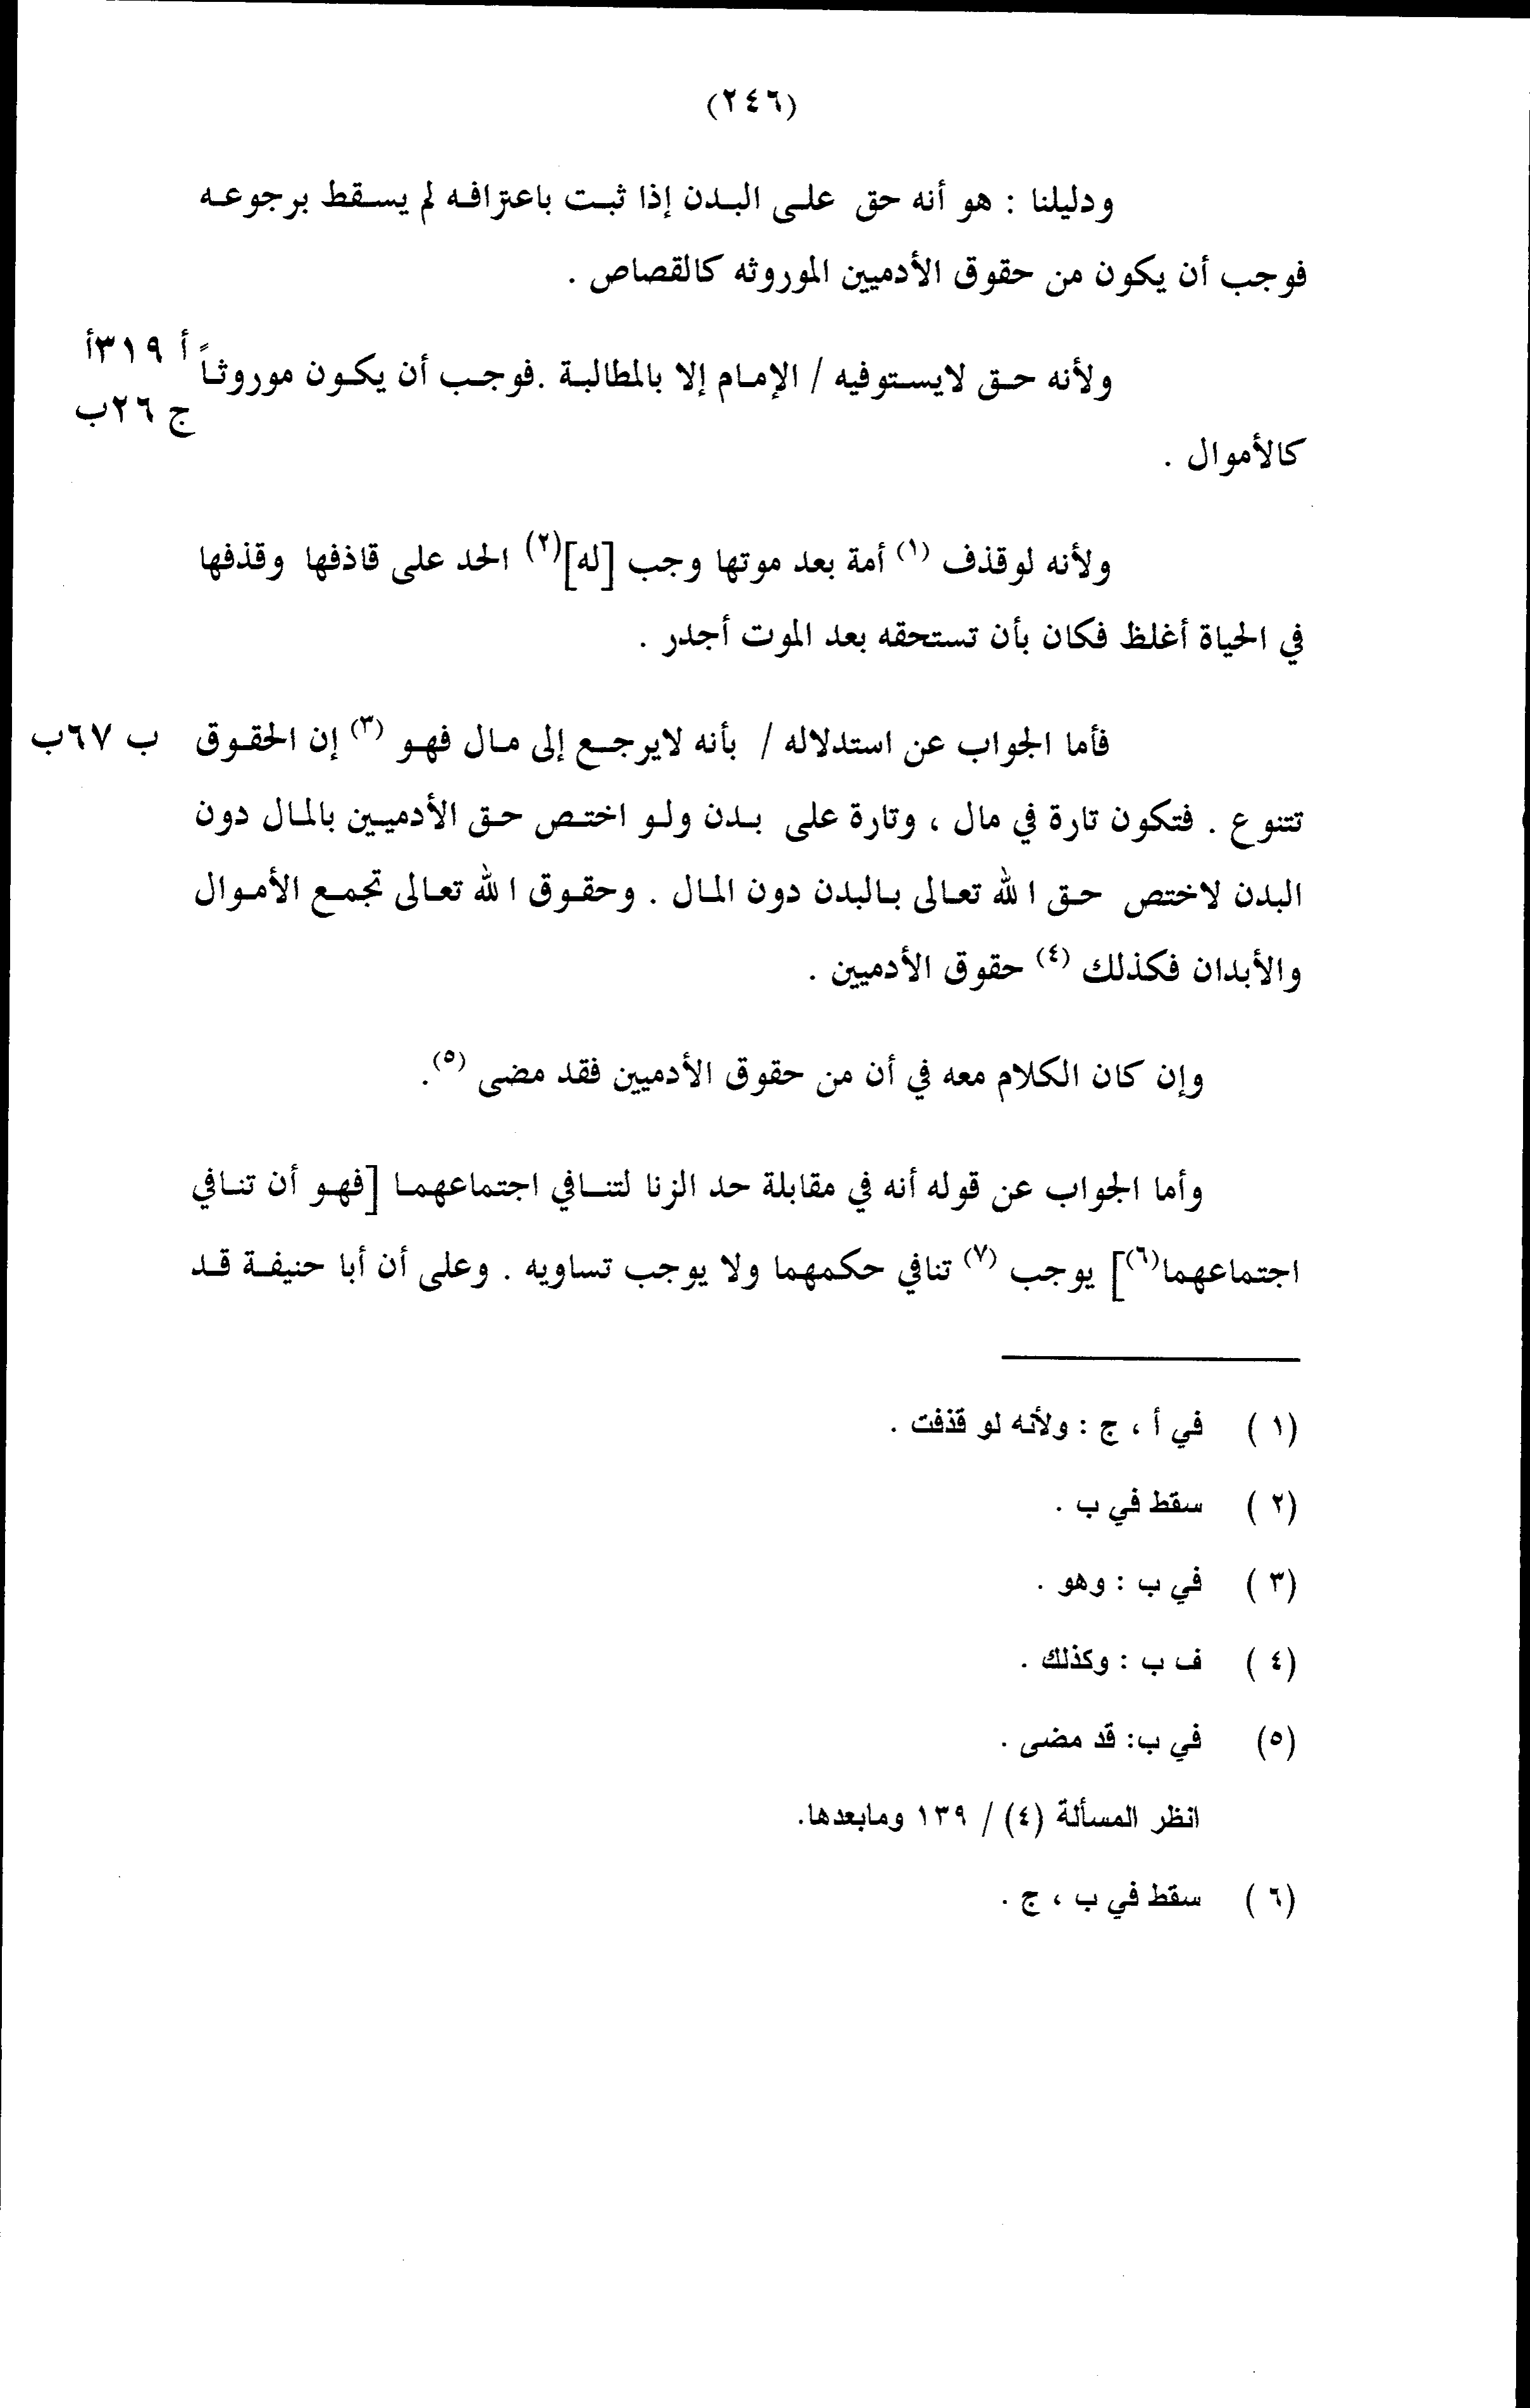 (٢٤٦)
ودليلنا : هو أنه حق على البدن إذا ثبت باعترافه لم يسقط برجوعه
فوجب أن يكون من حقوق الأدميين الموروثه كالقصاص .
ولأنه حق لايستوفيه / الإمام إلا بالمطالبة .فوجب أن يكون موروثاً أ ٣١٩أ
ج ٢٦ب
كالأموال .
ولأنه لوقذف (١) أمة بعد موتها وجب [له](٢) الحد على قاذفها وقذفها
في الحياة أغلظ فكان بأن تستحقه بعد الموت أجدر .
فأما الجواب عن استدلاله / بأنه لايرجع إلى مال فهو (٣) إن الحقوق ب ٦٧ب
تتنوع . فتكون تارة في مال ، وتارة على بدن ولو اختص حق الأدميين بالمال دون
البدن لاختص حق الله تعالى بالبدن دون المال . وحقوق الله تعالى تجمع الأموال
والأبدان فكذلك (٤) حقوق الأدميين .
وإن كان الكلام معه في أن من حقوق الأدميين فقد مضى (٥).
وأما الجواب عن قوله أنه في مقابلة حد الزنا لتنافي اجتماعهما [فهو أن تنافي
اجتماعهما(٦)] يوجب (٧) تنافي حكمهما ولا يوجب تساويه . وعلى أن أبا حنيفة قد
(١) في أ ، ج : ولأنه لو قذفت .
(٢) سقط في ب .
(٣) في ب : وهو .
(٤) ف ب : وكذلك .
(٥) في ب: قد مضى .
انظر المسألة (٤) / ١٣٩ ومابعدها.
(٦) سقط في ب ، ج .